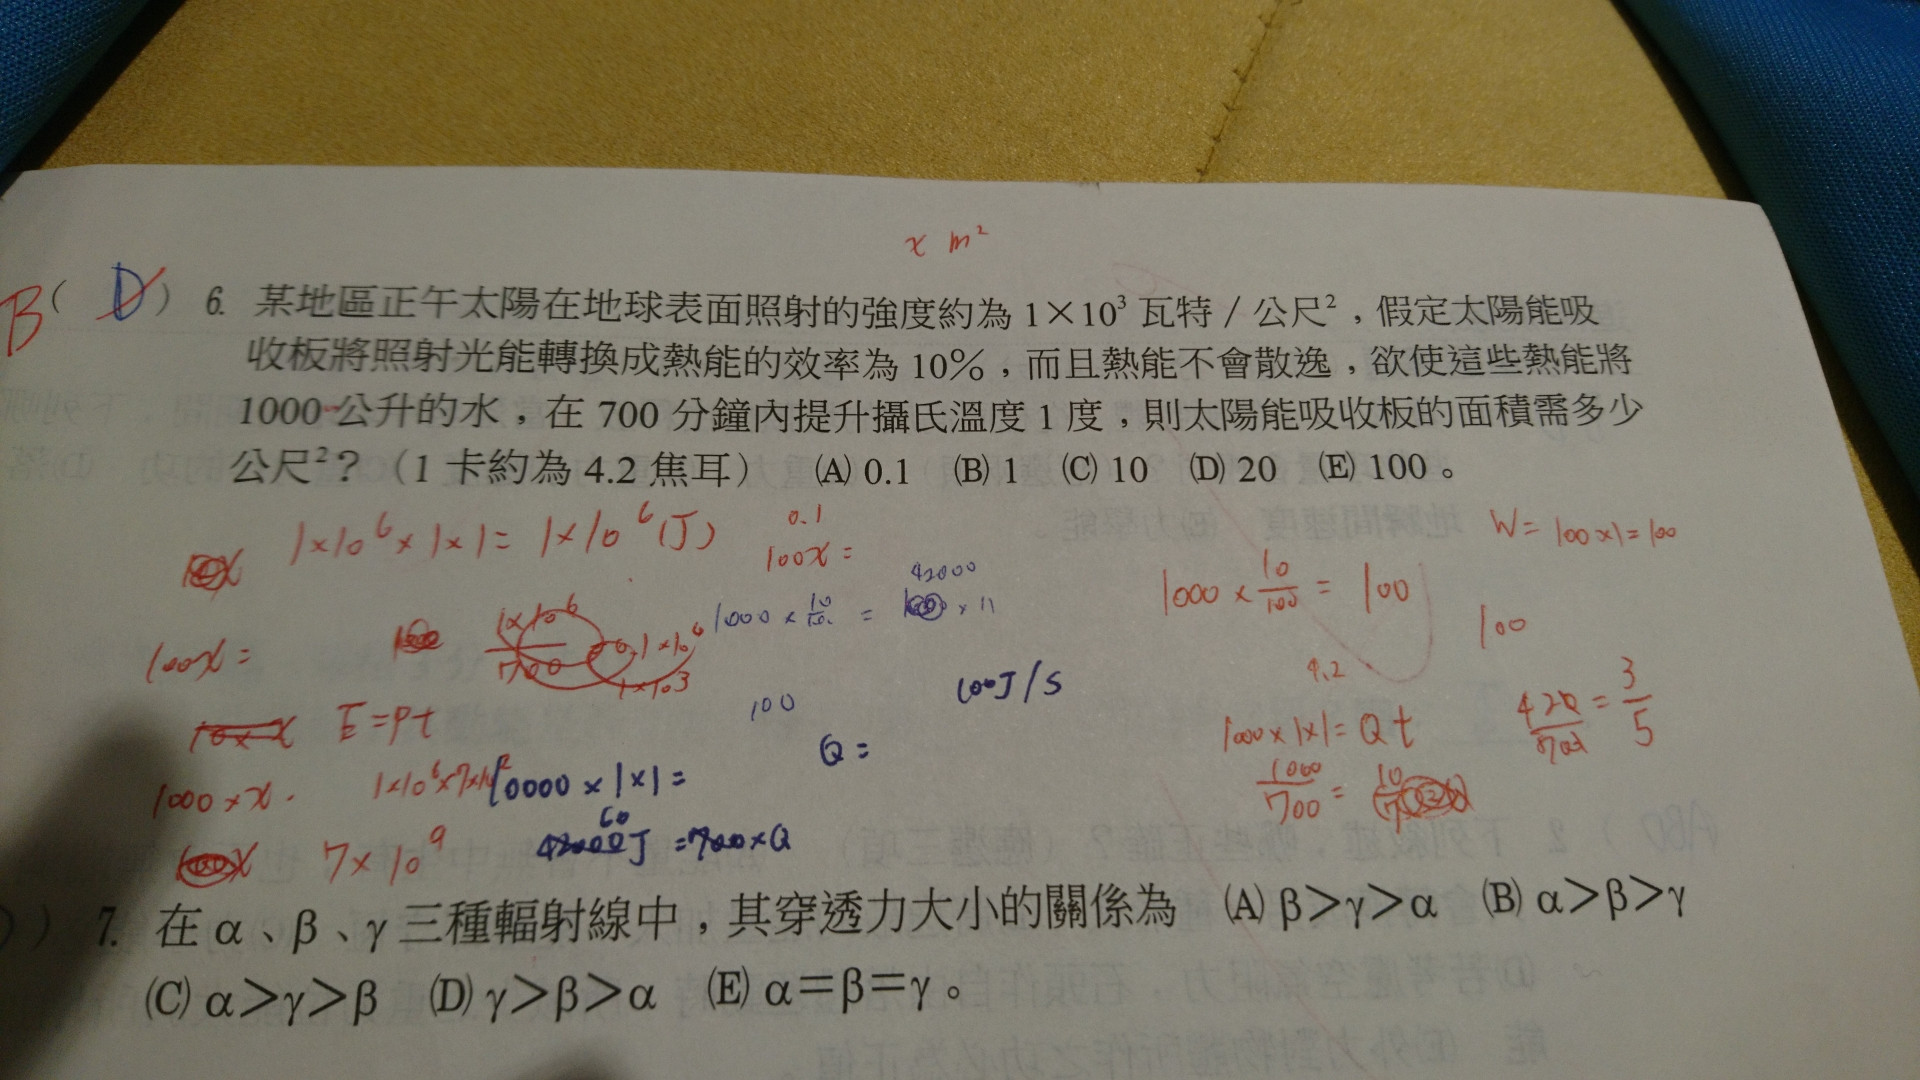 x m²
B ( D ) 6. 某地區正午太陽在地球表面照射的強度約為 1×10³ 瓦特 / 公尺²，假定太陽能吸
收板將照射光能轉換成熱能的效率為 10%，而且熱能不會散逸，欲使這些熱能將
1000 公升的水，在 700 分鐘內提升攝氏溫度 1 度，則太陽能吸收板的面積需多少
公尺²？（1 卡約為 4.2 焦耳） (A) 0.1 (B) 1 (C) 10 (D) 20 (E) 100。
1×10⁶×1×1= 1×10⁶(J)
0.1
100x =
W= 100×1=100
42000
1000 × 10/100 = 100
100x =
1×10⁶
700
0.1×10⁶
1×10³
100
100J/S
4.2
E=Pt
100
Q=
1000×1×1=Qt
420/700 = 3/5
1000×x
10000×1×1=
1000/700 =
7×10⁹
60
42000J =700×Q
7. 在 α、β、γ 三種輻射線中，其穿透力大小的關係為 (A) β＞γ＞α (B) α＞β＞γ
(C) α＞γ＞β (D) γ＞β＞α (E) α＝β＝γ。